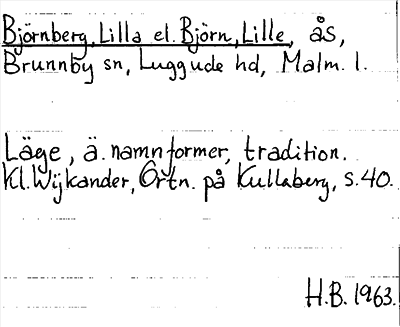 Björnberg, Lilla el. Björn, Lille, ås,
Brunnby sn, Luggude hd, Malm. l.
Läge, ä. namnformer, tradition.
Kl. Wijkander, Ortn. på Kullaberg, s. 40.
H.B. 1963.